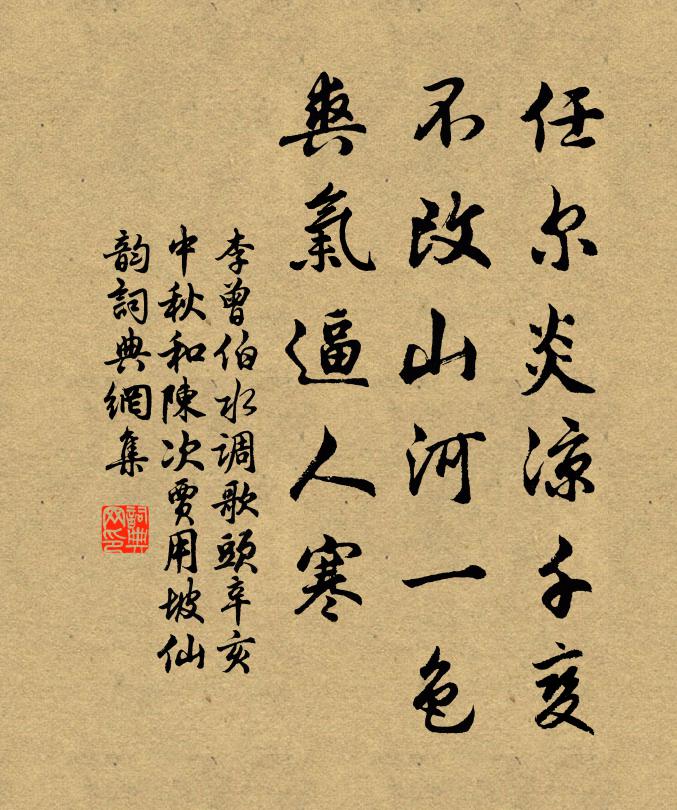 任尔炎凉千变
不改山河一色
爽氣逼人寒
李曾伯水调歌頭辛亥
中秋和陳次賈用坡仙
韵詞典網集
詞典网印